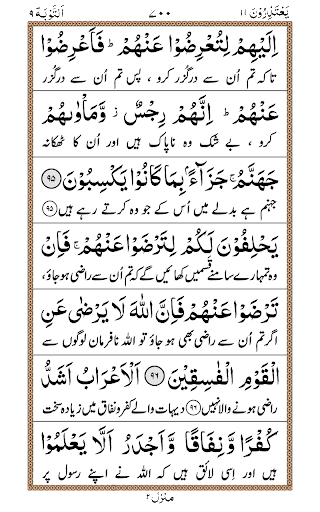 یَعْتَذِرُوْنَ ۱۱ ۷۰۰ اَلتَّوْبَة ۹
اِلَیْهِمْ لِتُعْرِضُوْا عَنْهُمْ ؕ فَاَعْرِضُوْا
تاکہ تم اُن سے درگزر کرو ، پس تم اُن سے درگزر
عَنْهُمْ ؕ اِنَّهُمْ رِجْسٌ ؗ وَّمَاْوٰىهُمْ
کرو ، بے شک وہ ناپاک ہیں اور اُن کا ٹھکانہ
جَهَنَّمُ ۚ جَزَآءًۢ بِمَا كَانُوْا یَكْسِبُوْنَ ۹۵
جہنم ہے بدلے میں اُس کے جو وہ کرتے رہے ہیں ۹۵
یَحْلِفُوْنَ لَكُمْ لِتَرْضَوْا عَنْهُمْ ۚ فَاِنْ
وہ تمہارے سامنے قسمیں کھائیں گے کہ تم اُن سے راضی ہوجاؤ،
تَرْضَوْا عَنْهُمْ فَاِنَّ اللّٰهَ لَا یَرْضٰى عَنِ
اگر تم اُن سے راضی بھی ہو جاؤ تو اللہ نافرمان لوگوں سے
الْقَوْمِ الْفٰسِقِیْنَ ۹۶ اَلْاَعْرَابُ اَشَدُّ
راضی ہونے والا نہیں ۹۶ دیہات والے کفر و نفاق میں زیادہ سخت
كُفْرًا وَّنِفَاقًا وَّاَجْدَرُ اَلَّا یَعْلَمُوْا
ہیں اور اِسی لائق ہیں کہ اللہ نے اپنے رسول پر
منزل ۲